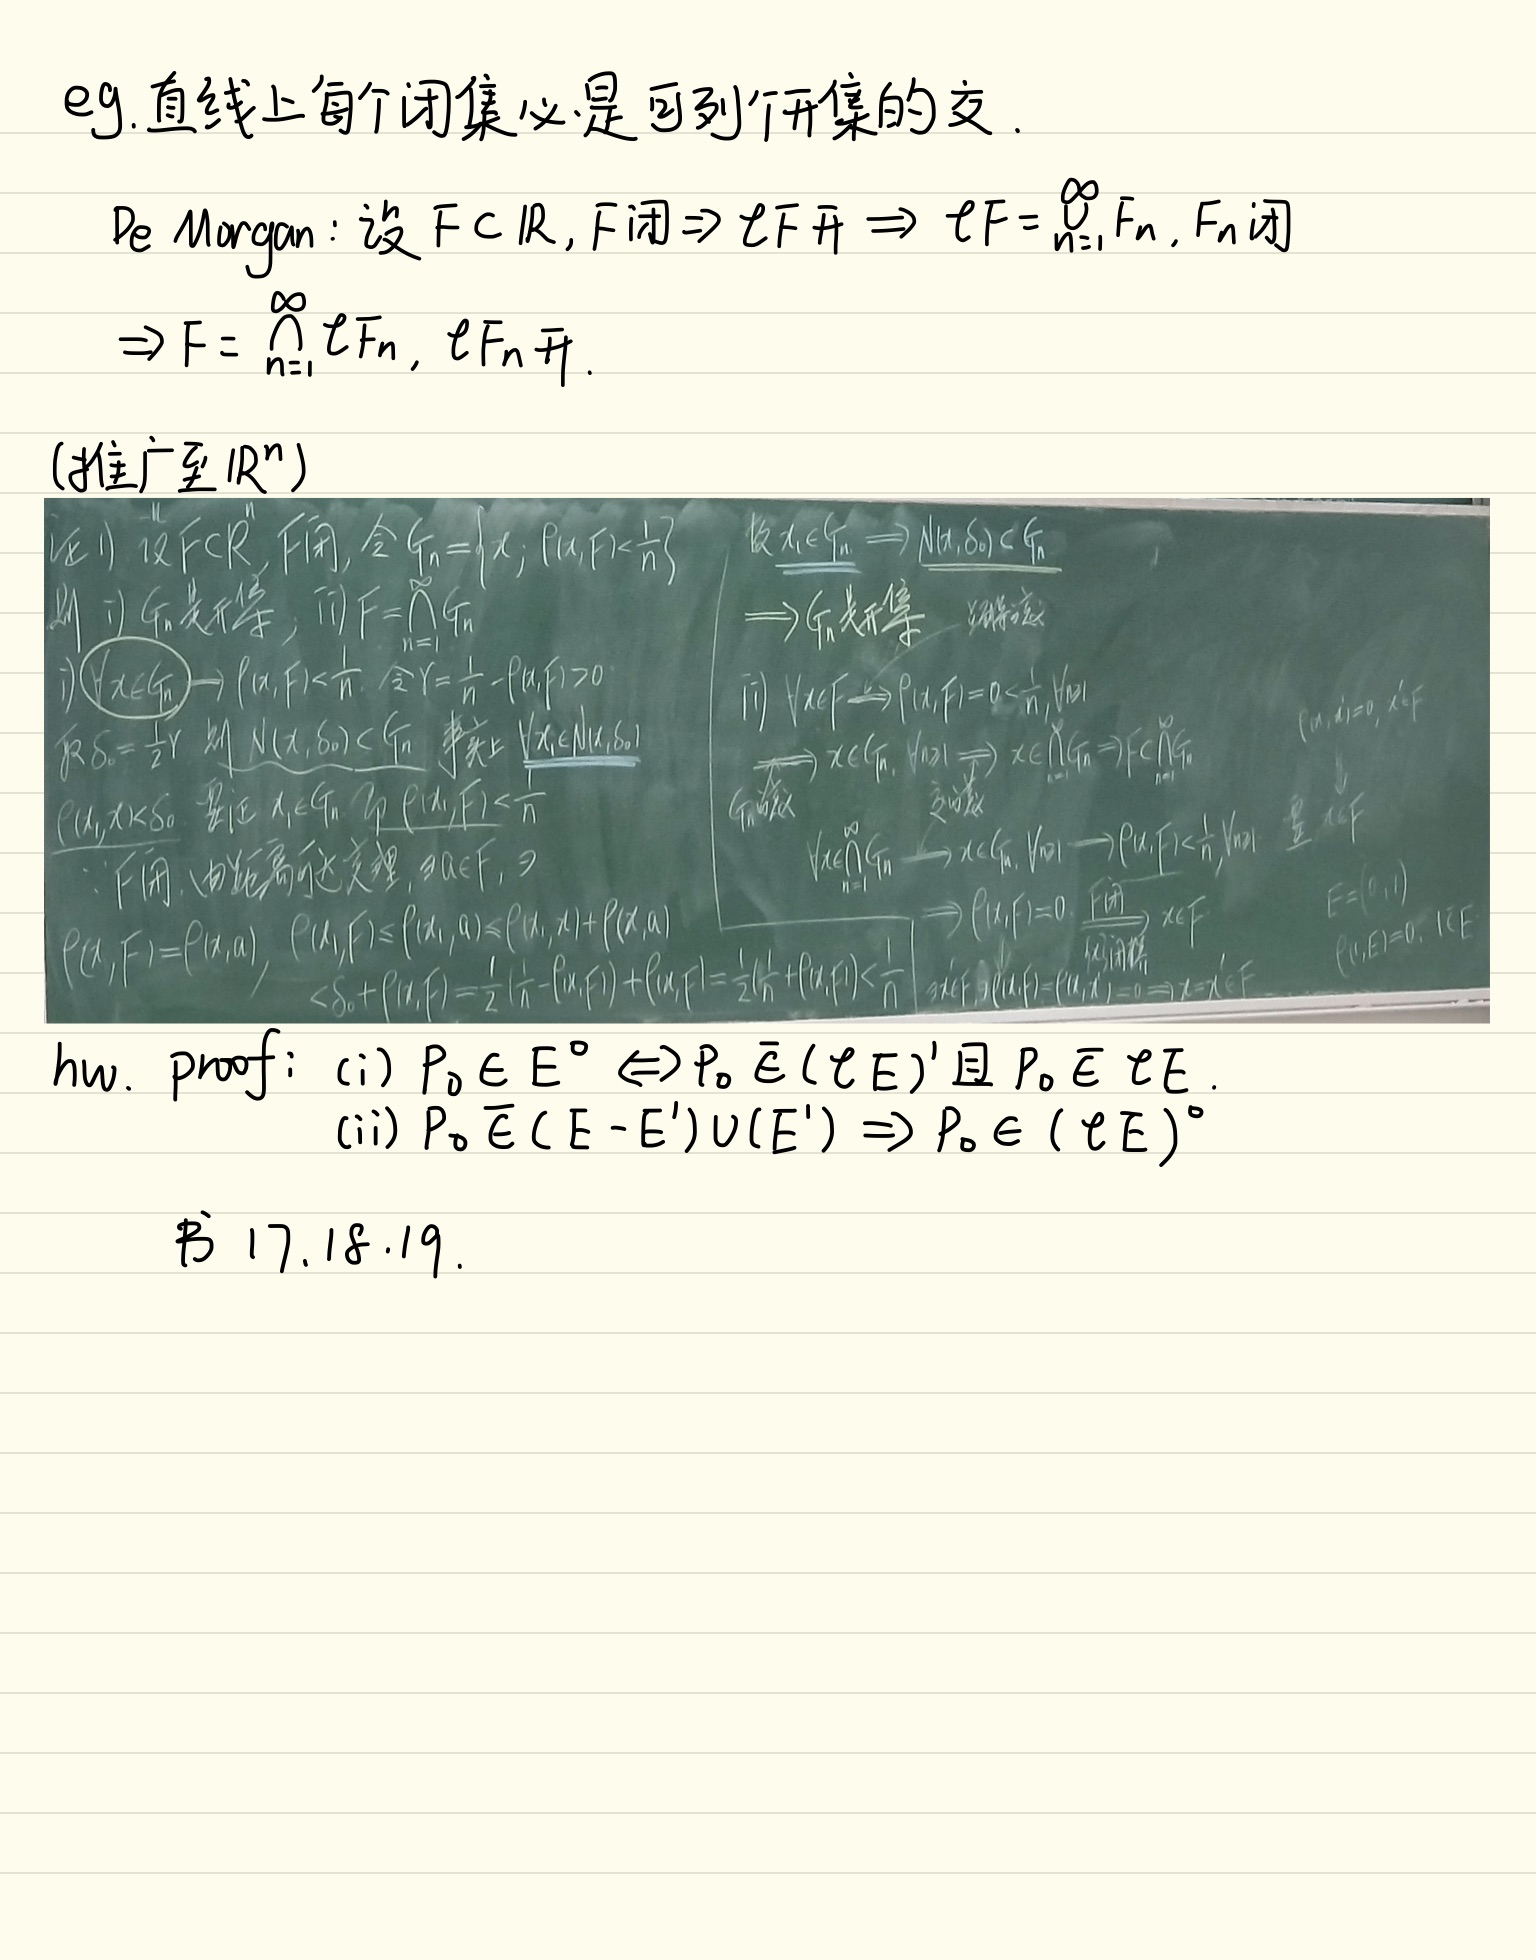 eg.直线上每个闭集必是可列个开集的交.
De Morgan:设 F⊂ℝ, F闭⇒ℓF开 ⇒ ℓF=∞∪n=1 Fn, Fn闭
⇒F=∞∩n=1 ℓFn, ℓFn开.
(推广至ℝⁿ)
证 1) 设F⊂Rⁿ, F闭, 令Gn={x; ρ(x,F)<1/n}
则 i) Gn是开集, ii) F=∞∩n=1 Gn
i) ∀x∈Gn→ρ(x,F)<1/n. 令r=1/n-ρ(x,F)>0
取δ₀=1/2r 则N(x,δ₀)⊂Gn 事实上 ∀x₁∈N(x,δ₀)
ρ(x₁,x)<δ₀. 要证 x₁∈Gn 即ρ(x₁,F)<1/n
∵F闭,由距离可达定理,∃a∈F,∋
ρ(x,F)=ρ(x,a), ρ(x₁,F)≤ρ(x₁,a)≤ρ(x₁,x)+ρ(x,a)
<δ₀+ρ(x,F)=1/2(1/n-ρ(x,F))+ρ(x,F)=1/2(1/n+ρ(x,F))<1/n
故x₁∈Gn ⇒N(x,δ₀)⊂Gn
⇒Gn是开集
ii) ∀x∈F→ρ(x,F)=0<1/n,∀n≥1
⇒x∈Gn, ∀n≥1⇒x∈∞∩n=1 Gn⇒F⊂∞∩n=1 Gn
Gn定义 交定义
∀x∈∞∩n=1 Gn→x∈Gn, ∀n≥1→ρ(x,F)<1/n,∀n≥1
⇒ρ(x,F)=0 F闭⇒x∈F
∃x'∈F,∋ρ(x,F)=ρ(x,x')=0⇒x=x'∈F
ρ(x,x')=0, x'∈F
⇓
x∈F
E=(0,1)
ρ(1,E)=0, 1∈̄E
hw. proof: (i) P₀∈E° ⇔P₀∈̄(ℓE)'且 P₀∈̄ℓE.
(ii) P₀∈̄(E-E')∪(E') ⇒ P₀∈(ℓE)°
书 17.18.19.